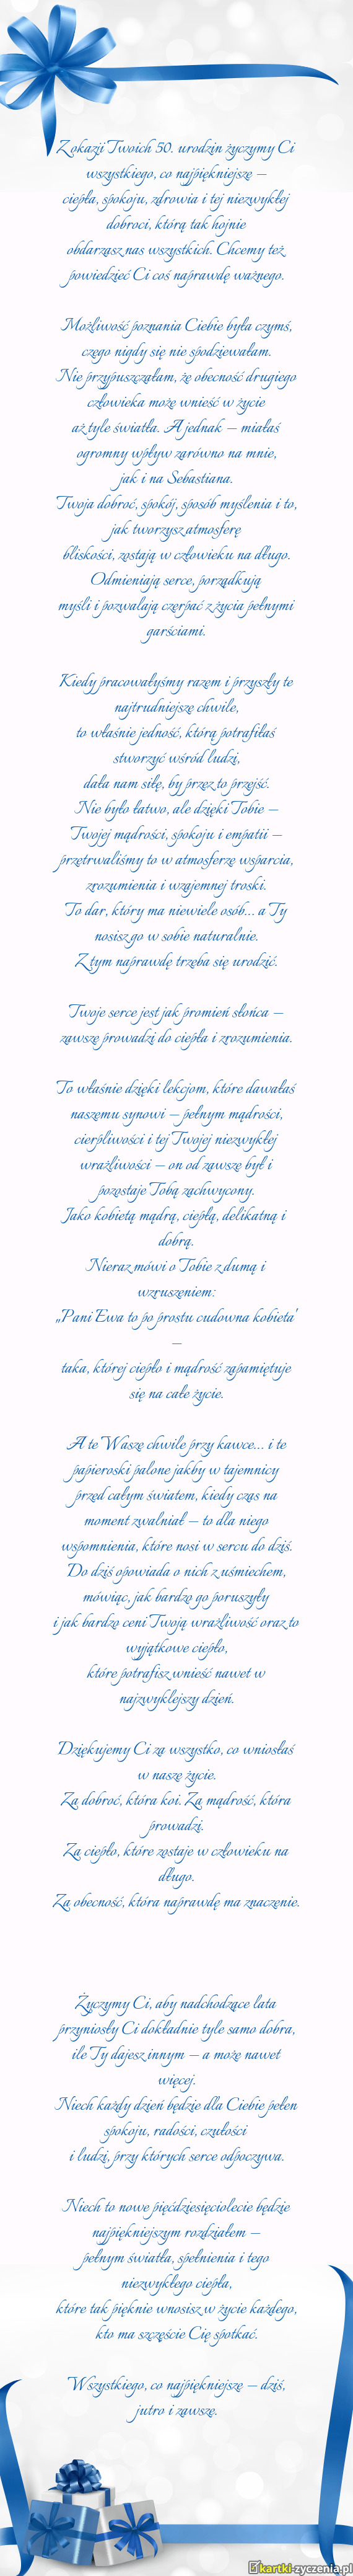 Z okazji Twoich 50. urodzin życzymy Ci
wszystkiego, co najpiękniejsze –
ciepła, spokoju, zdrowia i tej niezwykłej
dobroci, którą tak hojnie
obdarzasz nas wszystkich. Chcemy też
powiedzieć Ci coś naprawdę ważnego.
Możliwość poznania Ciebie była czymś,
czego nigdy się nie spodziewałam.
Nie przypuszczałam, że obecność drugiego
człowieka może wnieść w życie
aż tyle światła. A jednak – miałaś
ogromny wpływ zarówno na mnie,
jak i na Sebastiana.
Twoja dobroć, spokój, sposób myślenia i to,
jak tworzysz atmosferę
bliskości, zostają w człowieku na długo.
Odmieniają serce, porządkują
myśli i pozwalają czerpać z życia pełnymi
garściami.
Kiedy pracowałyśmy razem i przyszły te
najtrudniejsze chwile,
to właśnie jedność, którą potrafiłaś
stworzyć wśród ludzi,
dała nam siłę, by przez to przejść.
Nie było łatwo, ale dzięki Tobie –
Twojej mądrości, spokoju i empatii –
przetrwaliśmy to w atmosferze wsparcia,
zrozumienia i wzajemnej troski.
To dar, który ma niewiele osób... a Ty
nosisz go w sobie naturalnie.
Z tym naprawdę trzeba się urodzić.
Twoje serce jest jak promień słońca –
zawsze prowadzi do ciepła i zrozumienia.
To właśnie dzięki lekcjom, które dawałaś
naszemu synowi – pełnym mądrości,
cierpliwości i tej Twojej niezwykłej
wrażliwości – on od zawsze był i
pozostaje Tobą zachwycony.
Jako kobietą mądrą, ciepłą, delikatną i
dobrą.
Nieraz mówi o Tobie z dumą i
wzruszeniem:
„Pani Ewa to po prostu cudowna kobieta”
–
taka, której ciepło i mądrość zapamiętuje
się na całe życie.
A te Wasze chwile przy kawce... i te
papieroski palone jakby w tajemnicy
przed całym światem, kiedy czas na
moment zwalniał – to dla niego
wspomnienia, które nosi w sercu do dziś.
Do dziś opowiada o nich z uśmiechem,
mówiąc, jak bardzo go poruszyły
i jak bardzo ceni Twoją wrażliwość oraz to
wyjątkowe ciepło,
które potrafisz wnieść nawet w
najzwyklejszy dzień.
Dziękujemy Ci za wszystko, co wniosłaś
w nasze życie.
Za dobroć, która koi. Za mądrość, która
prowadzi.
Za ciepło, które zostaje w człowieku na
długo.
Za obecność, która naprawdę ma znaczenie.
Życzymy Ci, aby nadchodzące lata
przyniosły Ci dokładnie tyle samo dobra,
ile Ty dajesz innym – a może nawet
więcej.
Niech każdy dzień będzie dla Ciebie pełen
spokoju, radości, czułości
i ludzi, przy których serce odpoczywa.
Niech to nowe pięćdziesięciolecie będzie
najpiękniejszym rozdziałem –
pełnym światła, spełnienia i tego
niezwykłego ciepła,
które tak pięknie wnosisz w życie każdego,
kto ma szczęście Cię spotkać.
Wszystkiego, co najpiękniejsze – dziś,
jutro i zawsze.
kartki-zyczenia.pl